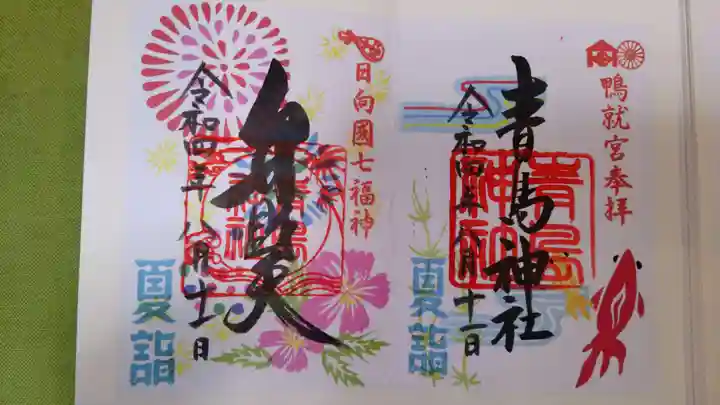 鴨就宮奉拝
青島神社
令和四年八月十一日
夏詣
青島神社
日向國七福神
弁財天
令和四年八月十一日
夏詣